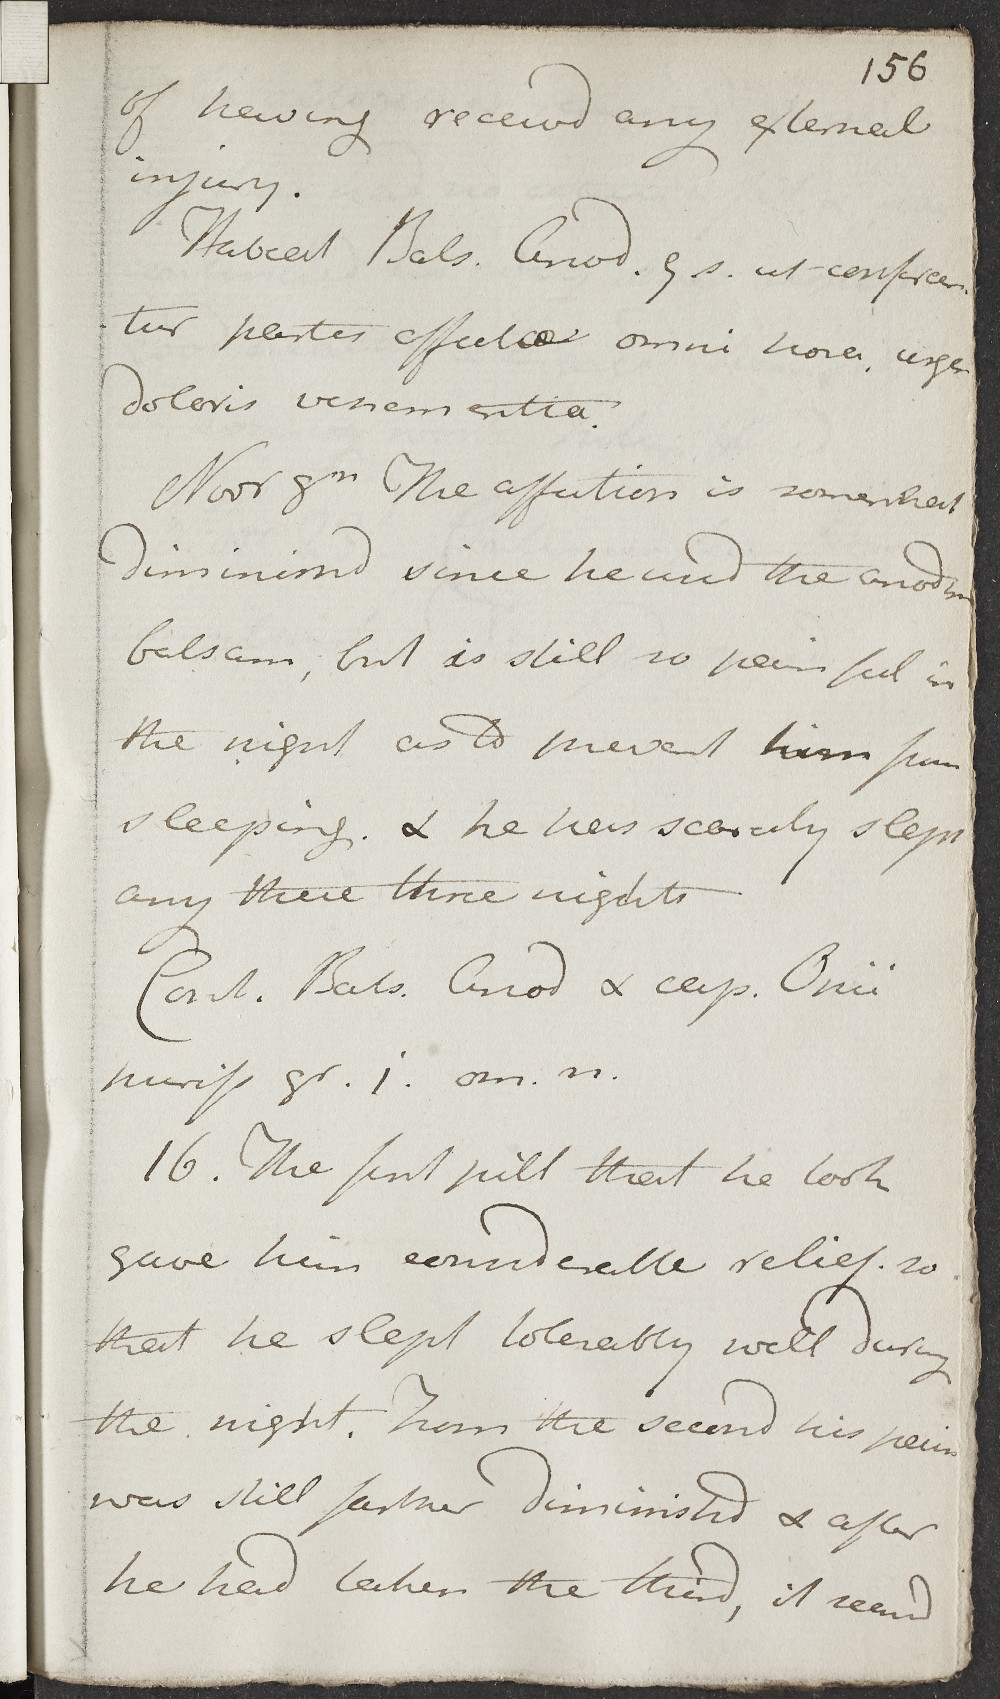 156
of having receivd any external
injury.
Habeat Bals. Anod. q s. ut confrican
tur partes affectae omni hora, urgen
doloris vehementia.
Novr 8th The affection is somewhat
diminishd since he used the anodyn
balsam, but is still so painful in
the night as to prevent him from
sleeping. & he has scarcely slept
any these three nights
Cont. Bals. Anod & cap. Opii
puriss gr. j. om. n.
16. The first pill that he took
gave him considerable relief. so
that he slept tolerably well during
the night. From the second his pain
was still farther diminishd & after
he had taken the third, it ceasd